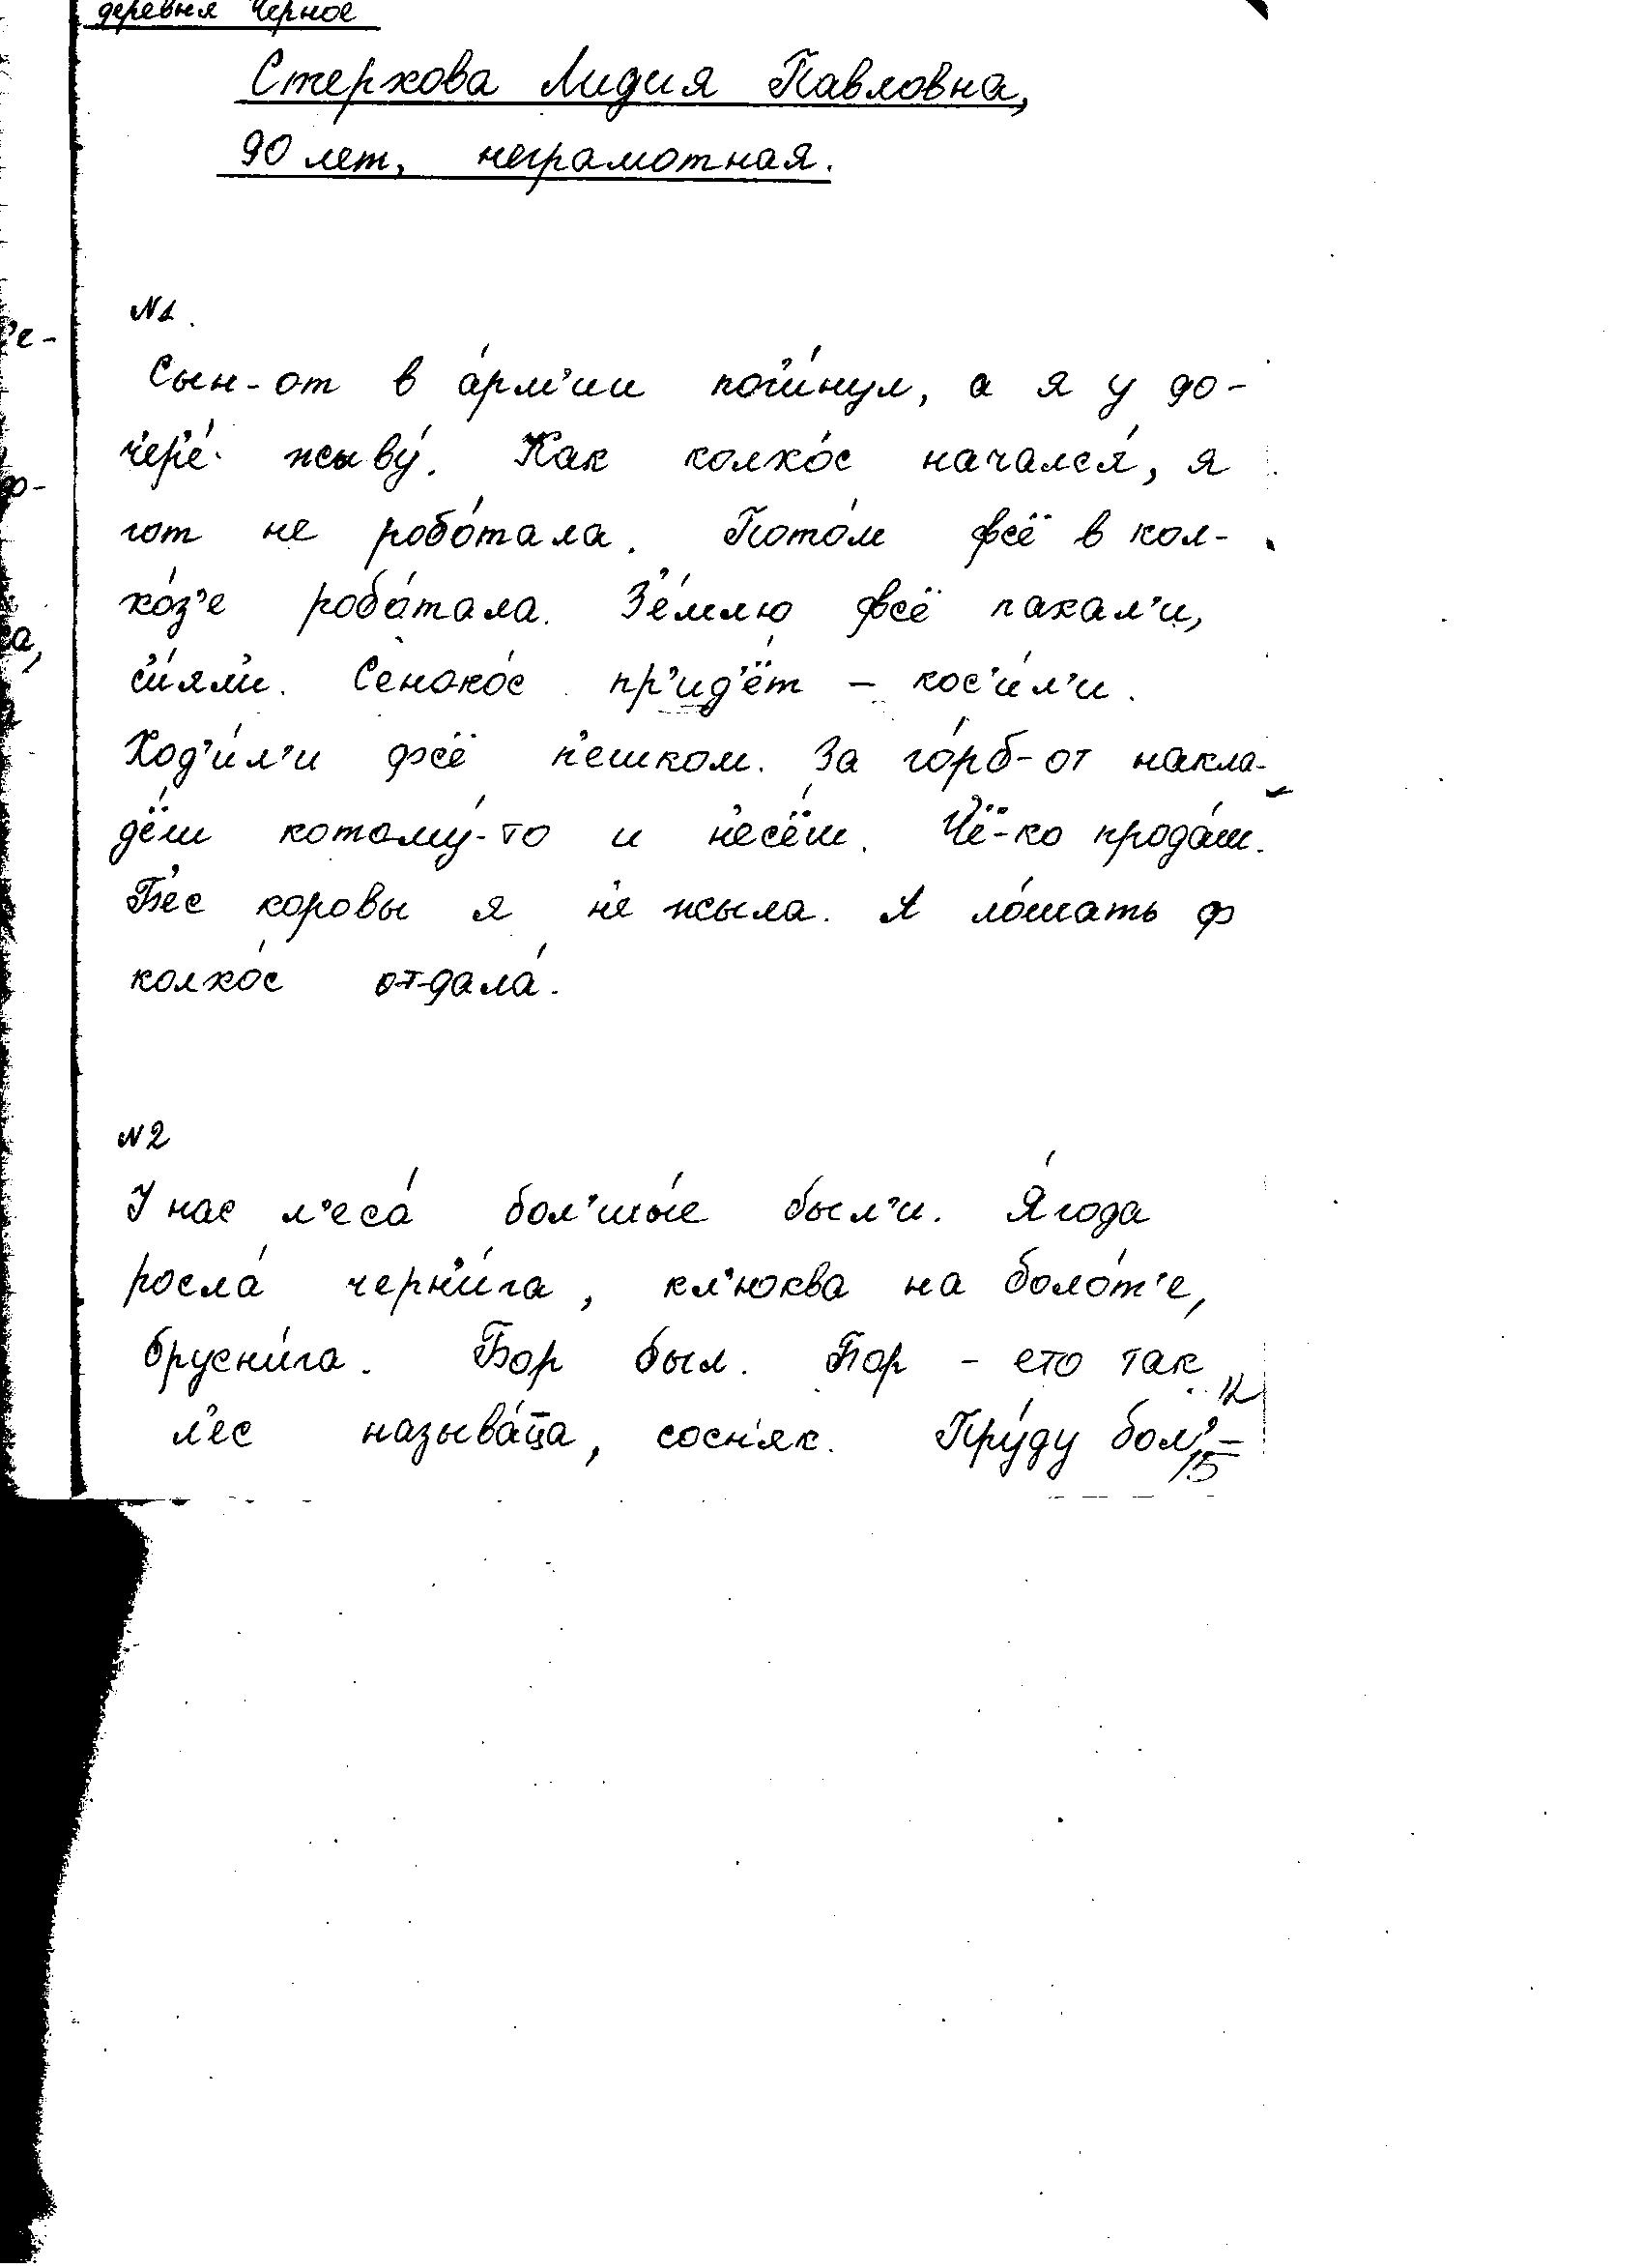 деревня Черное
Стерхова Лидия Павловна,
90 лет, неграмотная.
№1.
Сын-от в а́рм'ии пог'и́нул, а я у до-
ч'ер'е́ жыву́. Как колхо́с начался́, я
гот не робо́тала. Пото́м фс'ё в кол-
хо́з'е робо́тала. З'е́млю фс'ё пахал'и,
с'и́ял'и. С'еноко́с пр'ид'ёт – кос'и́л'и.
Ход'и́л'и фс'ё п'ешком. За го́рб-от накла-
д'ёш котому́-то и н'ес'ёш. Ч'ё-ко прода́ш.
Б'ес коровы я н'е жыла. А ло́шать ф
колхо́с отдала́.
№2
У нас л'еса́ бол'шы́е был'и. Я́года
росла́ черн'и́га, кл'юква на боло́т'е,
брусни́га. Бор был. Бор – ето так
л'ес называ́ц̄а, сосн'як. Пру́ду бол'-
12
15
'е-
до-
а,